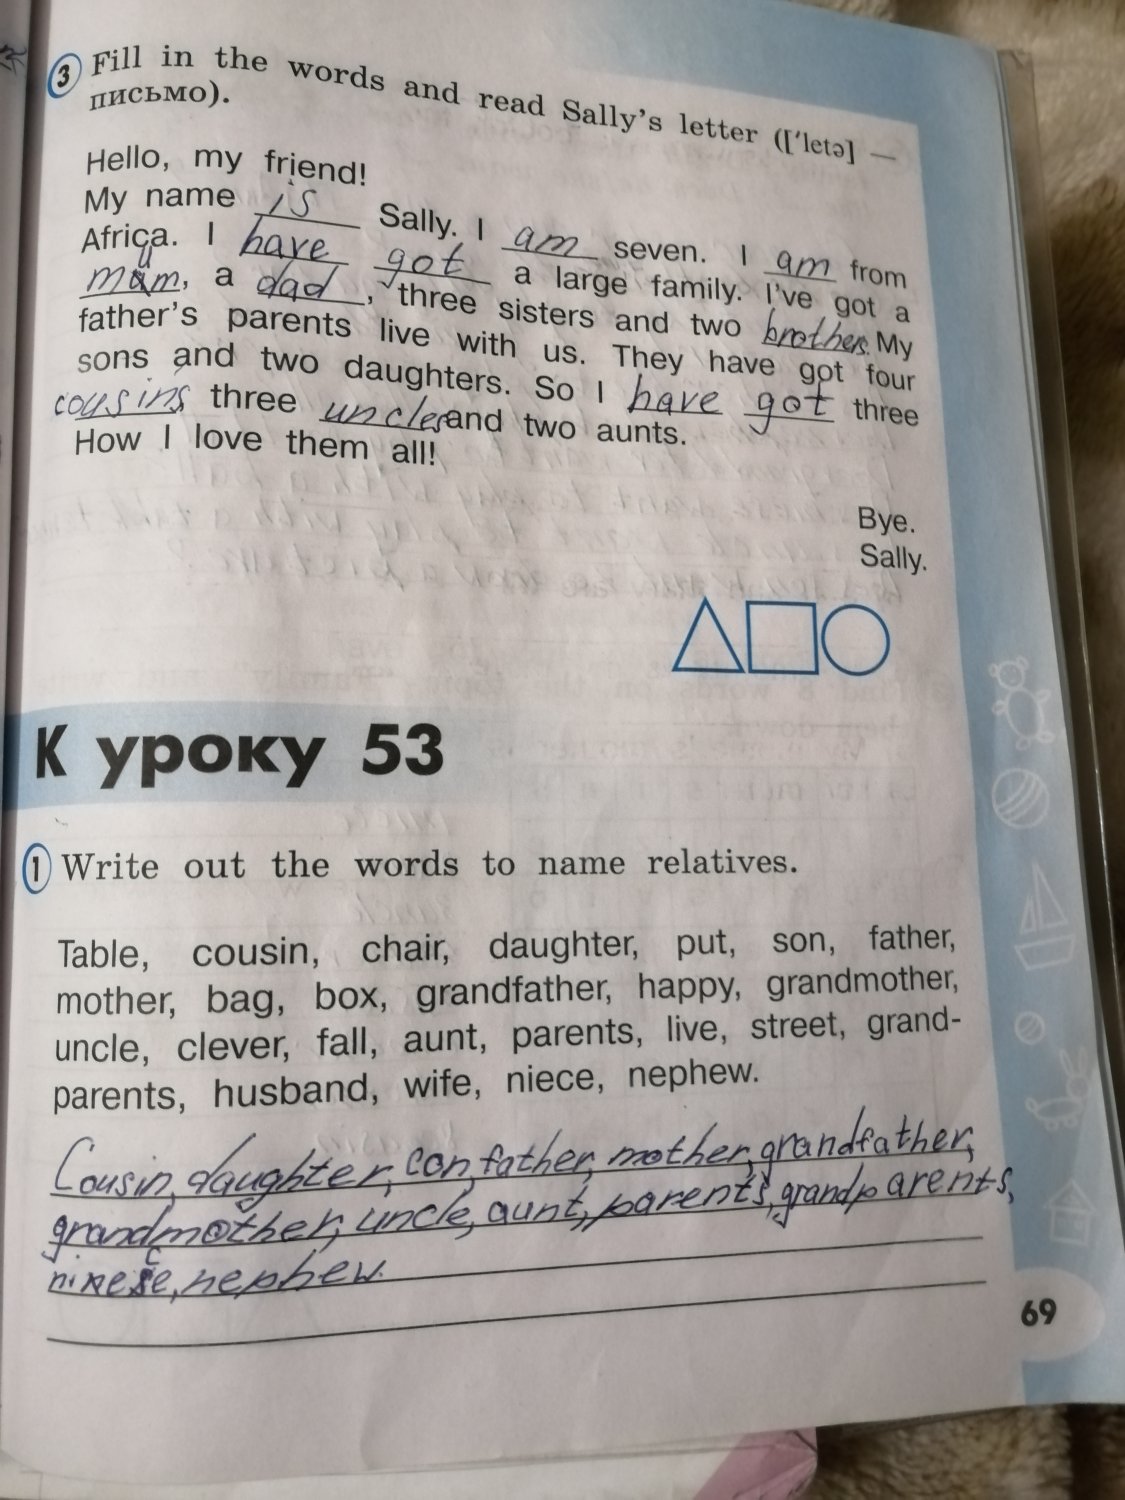 3 Fill in the words and read Sally's letter (['letə] —
письмо).
Hello, my friend!
My name is Sally. I am seven. I am from
Africa. I have got a large family. I've got a
mum, a dad, three sisters and two brothers. My
father's parents live with us. They have got four
sons and two daughters. So I have got three
cousins, three uncles and two aunts.
How I love them all!
Bye.
Sally.
К уроку 53
1 Write out the words to name relatives.
Table, cousin, chair, daughter, put, son, father,
mother, bag, box, grandfather, happy, grandmother,
uncle, clever, fall, aunt, parents, live, street, grand-
parents, husband, wife, niece, nephew.
Cousin, daughter, con, father, mother, grandfather,
grandmother, uncle, aunt, parents, grandparents,
nephew.
69